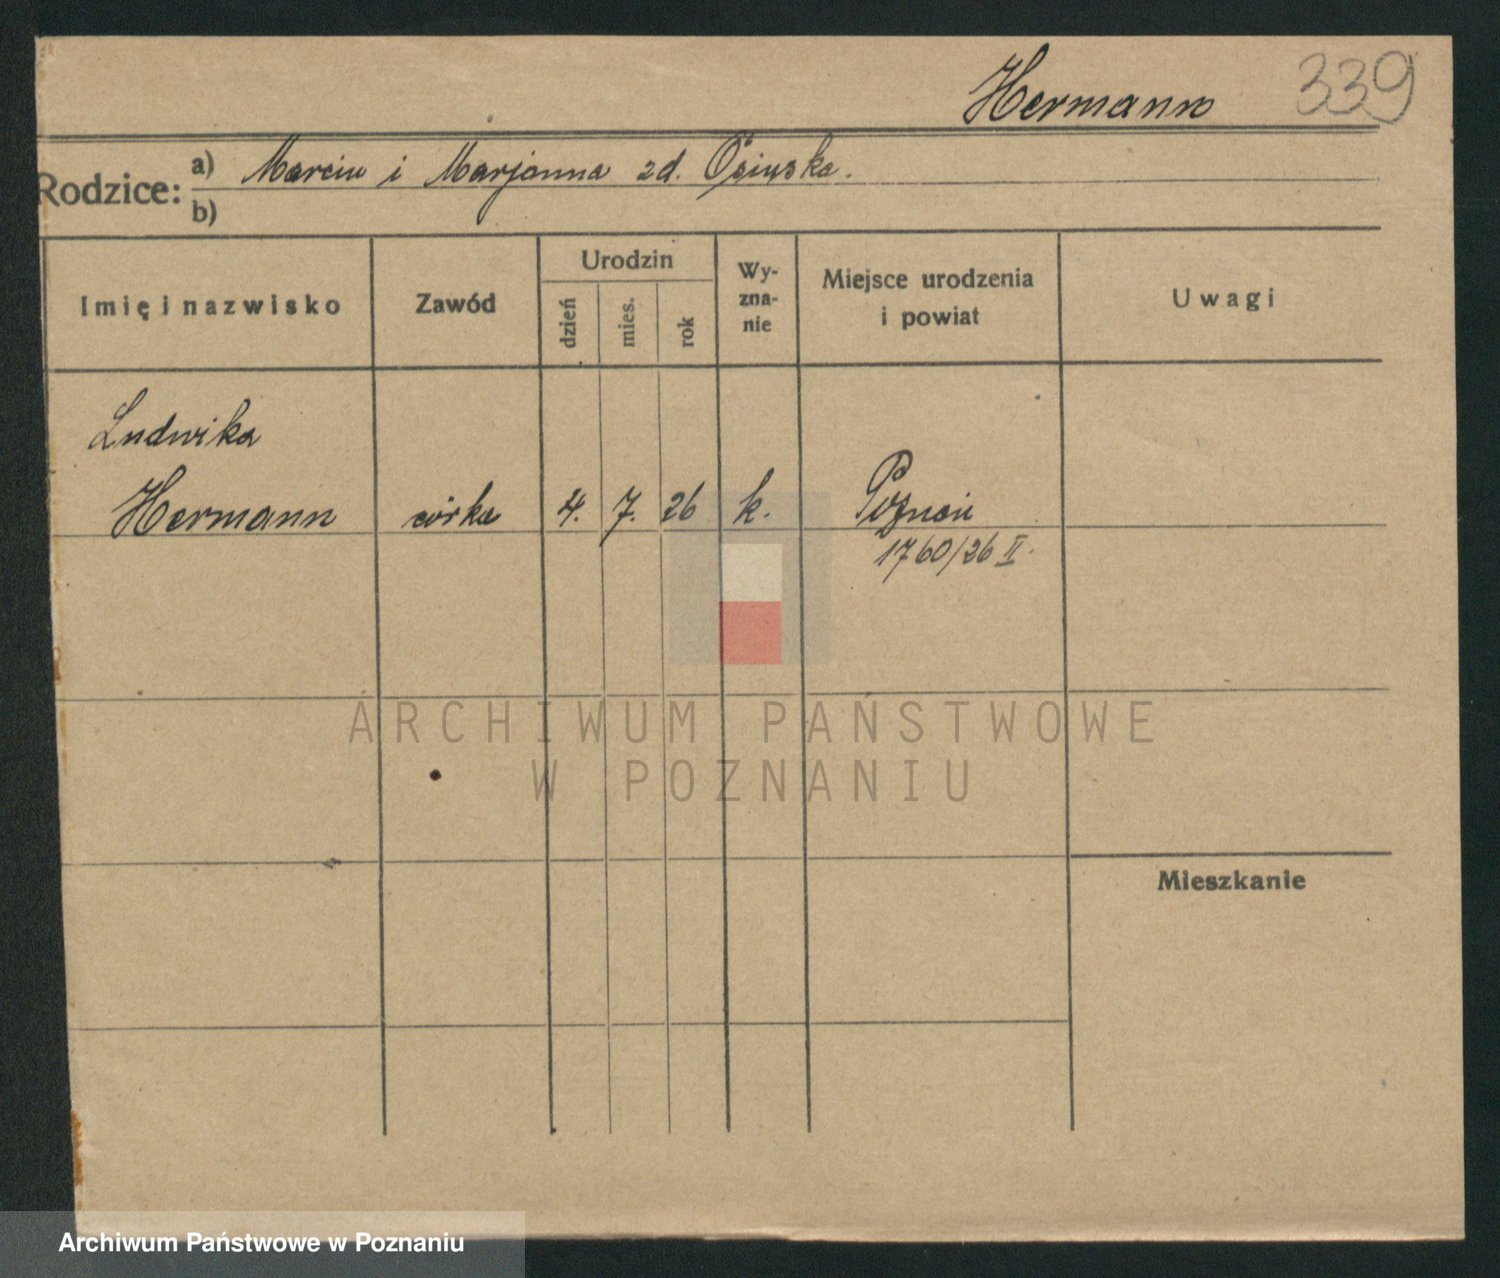 Hermann 339
Rodzice: a) Marcin i Marjanna zd. Osińska.
b)
Imię i nazwisko
Zawód
Urodzin
dzień
mies.
rok
Wy-
zna-
nie
Miejsce urodzenia
i powiat
Uwagi
Ludwika
Hermann córka 4. 7. 26 k. Poznań
1760/26 II.
ARCHIWUM PAŃSTWOWE
W POZNANIU
Mieszkanie
Archiwum Państwowe w Poznaniu